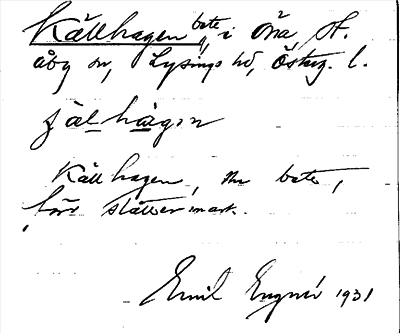 Källhagen, bete, i Öna, St.
åby sn, Lysings hd, Östg. l.
källhagen
Källhagen, nu bete,
förr slåttermark.
Emil 1931